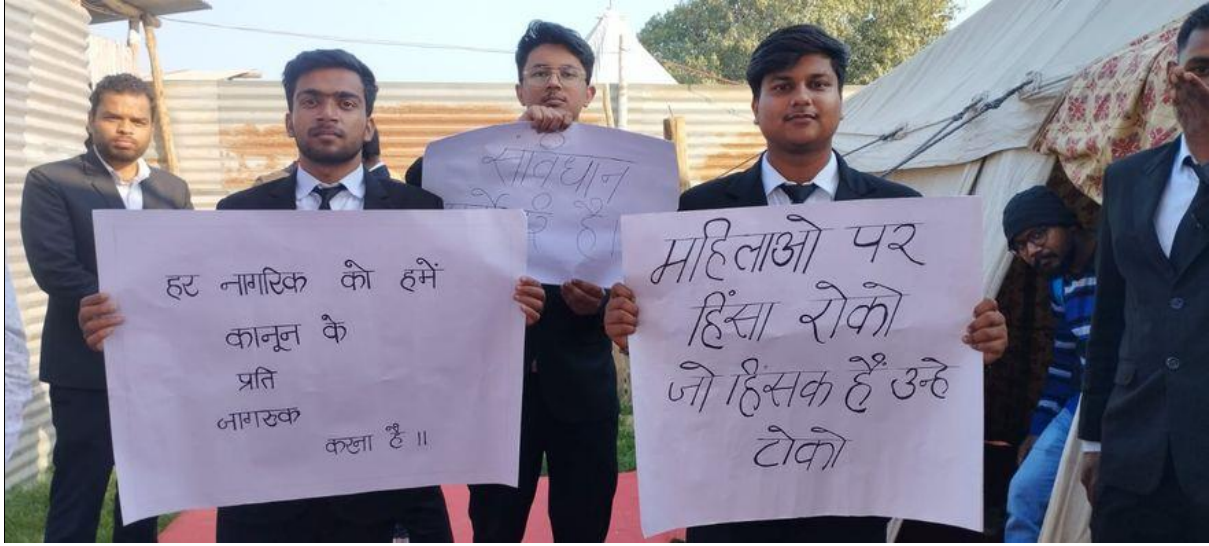 हर नागरिक को हमें
कानून के
प्रति
जागरुक
करना है ॥
सावधान
है।
महिलाओ पर
हिंसा रोको
जो हिंसक हैं उन्हे
टोको